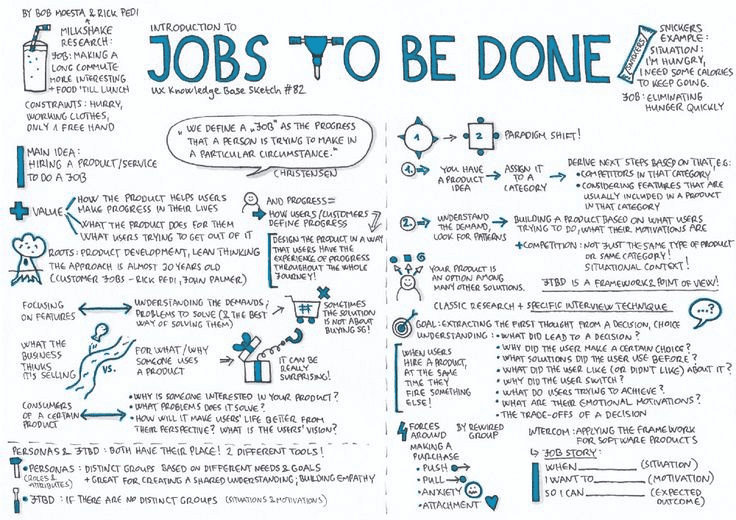 BY BOB MOESTA & RICK PEDI
MILKSHAKE
RESEARCH:
JOB: MAKING A
LONG COMMUTE
MORE INTERESTING
+ FOOD 'TILL LUNCH
CONSTRAINTS: HURRY,
WORKING CLOTHES,
ONLY 1 FREE HAND
INTRODUCTION TO
JOBS TO BE DONE
UX Knowledge Base Sketch #82
SNICKERS
EXAMPLE:
SITUATION:
I'M HUNGRY,
I NEED SOME CALORIES
TO KEEP GOING.
JOB: ELIMINATING
HUNGER QUICKLY
SNICKERS
MAIN IDEA:
HIRING A PRODUCT/SERVICE
TO DO A JOB
"WE DEFINE A „JOB" AS THE PROGRESS
THAT A PERSON IS TRYING TO MAKE IN
A PARTICULAR CIRCUMSTANCE."
CHRISTENSEN
VALUE
HOW THE PRODUCT HELPS USERS
MAKE PROGRESS IN THEIR LIVES
WHAT THE PRODUCT DOES FOR THEM
WHAT USERS TRYING TO GET OUT OF IT
AND PROGRESS =
HOW USERS/CUSTOMERS
DEFINE PROGRESS
DESIGN THE PRODUCT IN A WAY
THAT USERS HAVE THE
EXPERIENCE OF PROGRESS
THROUGHOUT THE WHOLE
JOURNEY!
ROOTS: PRODUCT DEVELOPMENT, LEAN THINKING
THE APPROACH IS ALMOST 20 YEARS OLD
(CUSTOMER JOBS - RICK PEDI, JOHN PALMER)
FOCUSING
ON FEATURES
UNDERSTANDING THE DEMANDS;
PROBLEMS TO SOLVE (& THE BEST
WAY OF SOLVING THEM)
SOMETIMES
THE SOLUTION
IS NOT ABOUT
BUYING SG!
WHAT THE
BUSINESS
THINKS
IT'S SELLING
VS.
FOR WHAT / WHY
SOMEONE USES
A PRODUCT
?
IT CAN BE
REALLY
SURPRISING!
CONSUMERS
OF A CERTAIN
PRODUCT
• WHY IS SOMEONE INTERESTED IN YOUR PRODUCT?
• WHAT PROBLEMS DOES IT SOLVE?
• HOW WILL IT MAKE USERS' LIFE BETTER FROM
THEIR PERSPECTIVE? WHAT IS THE USERS' VISION?
PERSONAS & JTBD: BOTH HAVE THEIR PLACE! 2 DIFFERENT TOOLS!
• PERSONAS: DISTINCT GROUPS BASED ON DIFFERENT NEEDS & GOALS
(ROLES & ATTRIBUTES) + GREAT FOR CREATING A SHARED UNDERSTANDING; BUILDING EMPATHY
• JTBD: IF THERE ARE NO DISTINCT GROUPS (SITUATIONS & MOTIVATIONS)
1 → 2 PARADIGM SHIFT!
1. YOU HAVE
A PRODUCT
IDEA
ASSIGN IT
TO A
CATEGORY
DERIVE NEXT STEPS BASED ON THAT, E.G:
• COMPETITORS IN THAT CATEGORY
• CONSIDERING FEATURES THAT ARE
USUALLY INCLUDED IN A PRODUCT
IN THAT CATEGORY
2. UNDERSTAND
THE DEMAND,
LOOK FOR PATTERNS
BUILDING A PRODUCT BASED ON WHAT USERS
TRYING TO DO, WHAT THEIR MOTIVATIONS ARE
+ COMPETITION: NOT JUST THE SAME TYPE OF PRODUCT
OR SAME CATEGORY!
SITUATIONAL CONTEXT!
YOUR PRODUCT IS
AN OPTION AMONG
MANY OTHER SOLUTIONS.
JTBD IS A FRAMEWORK & POINT OF VIEW!
CLASSIC RESEARCH + SPECIFIC INTERVIEW TECHNIQUE
...?
GOAL: EXTRACTING THE FIRST THOUGHT FROM A DECISION, CHOICE
UNDERSTANDING:
• WHAT DID LEAD TO A DECISION?
• WHY DID THE USER MAKE A CERTAIN CHOICE?
• WHAT SOLUTIONS DID THE USER USE BEFORE?
• WHAT DID THE USER LIKE (OR DIDN'T LIKE) ABOUT IT?
• WHY DID THE USER SWITCH?
• WHAT DO USERS TRYING TO ACHIEVE?
• WHAT ARE THEIR EMOTIONAL MOTIVATIONS?
• THE TRADE-OFFS OF A DECISION
WHEN USERS
HIRE A PRODUCT,
AT THE SAME
TIME THEY
FIRE SOMETHING
ELSE!
4 FORCES
AROUND
MAKING A
PURCHASE
BY REWIRED
GROUP
• PUSH
• PULL
• ANXIETY
• ATTACHMENT
INTERCOM: APPLYING THE FRAMEWORK
FOR SOFTWARE PRODUCTS
JOB STORY:
WHEN ________ (SITUATION)
I WANT TO ________ (MOTIVATION)
SO I CAN ________ (EXPECTED
OUTCOME)